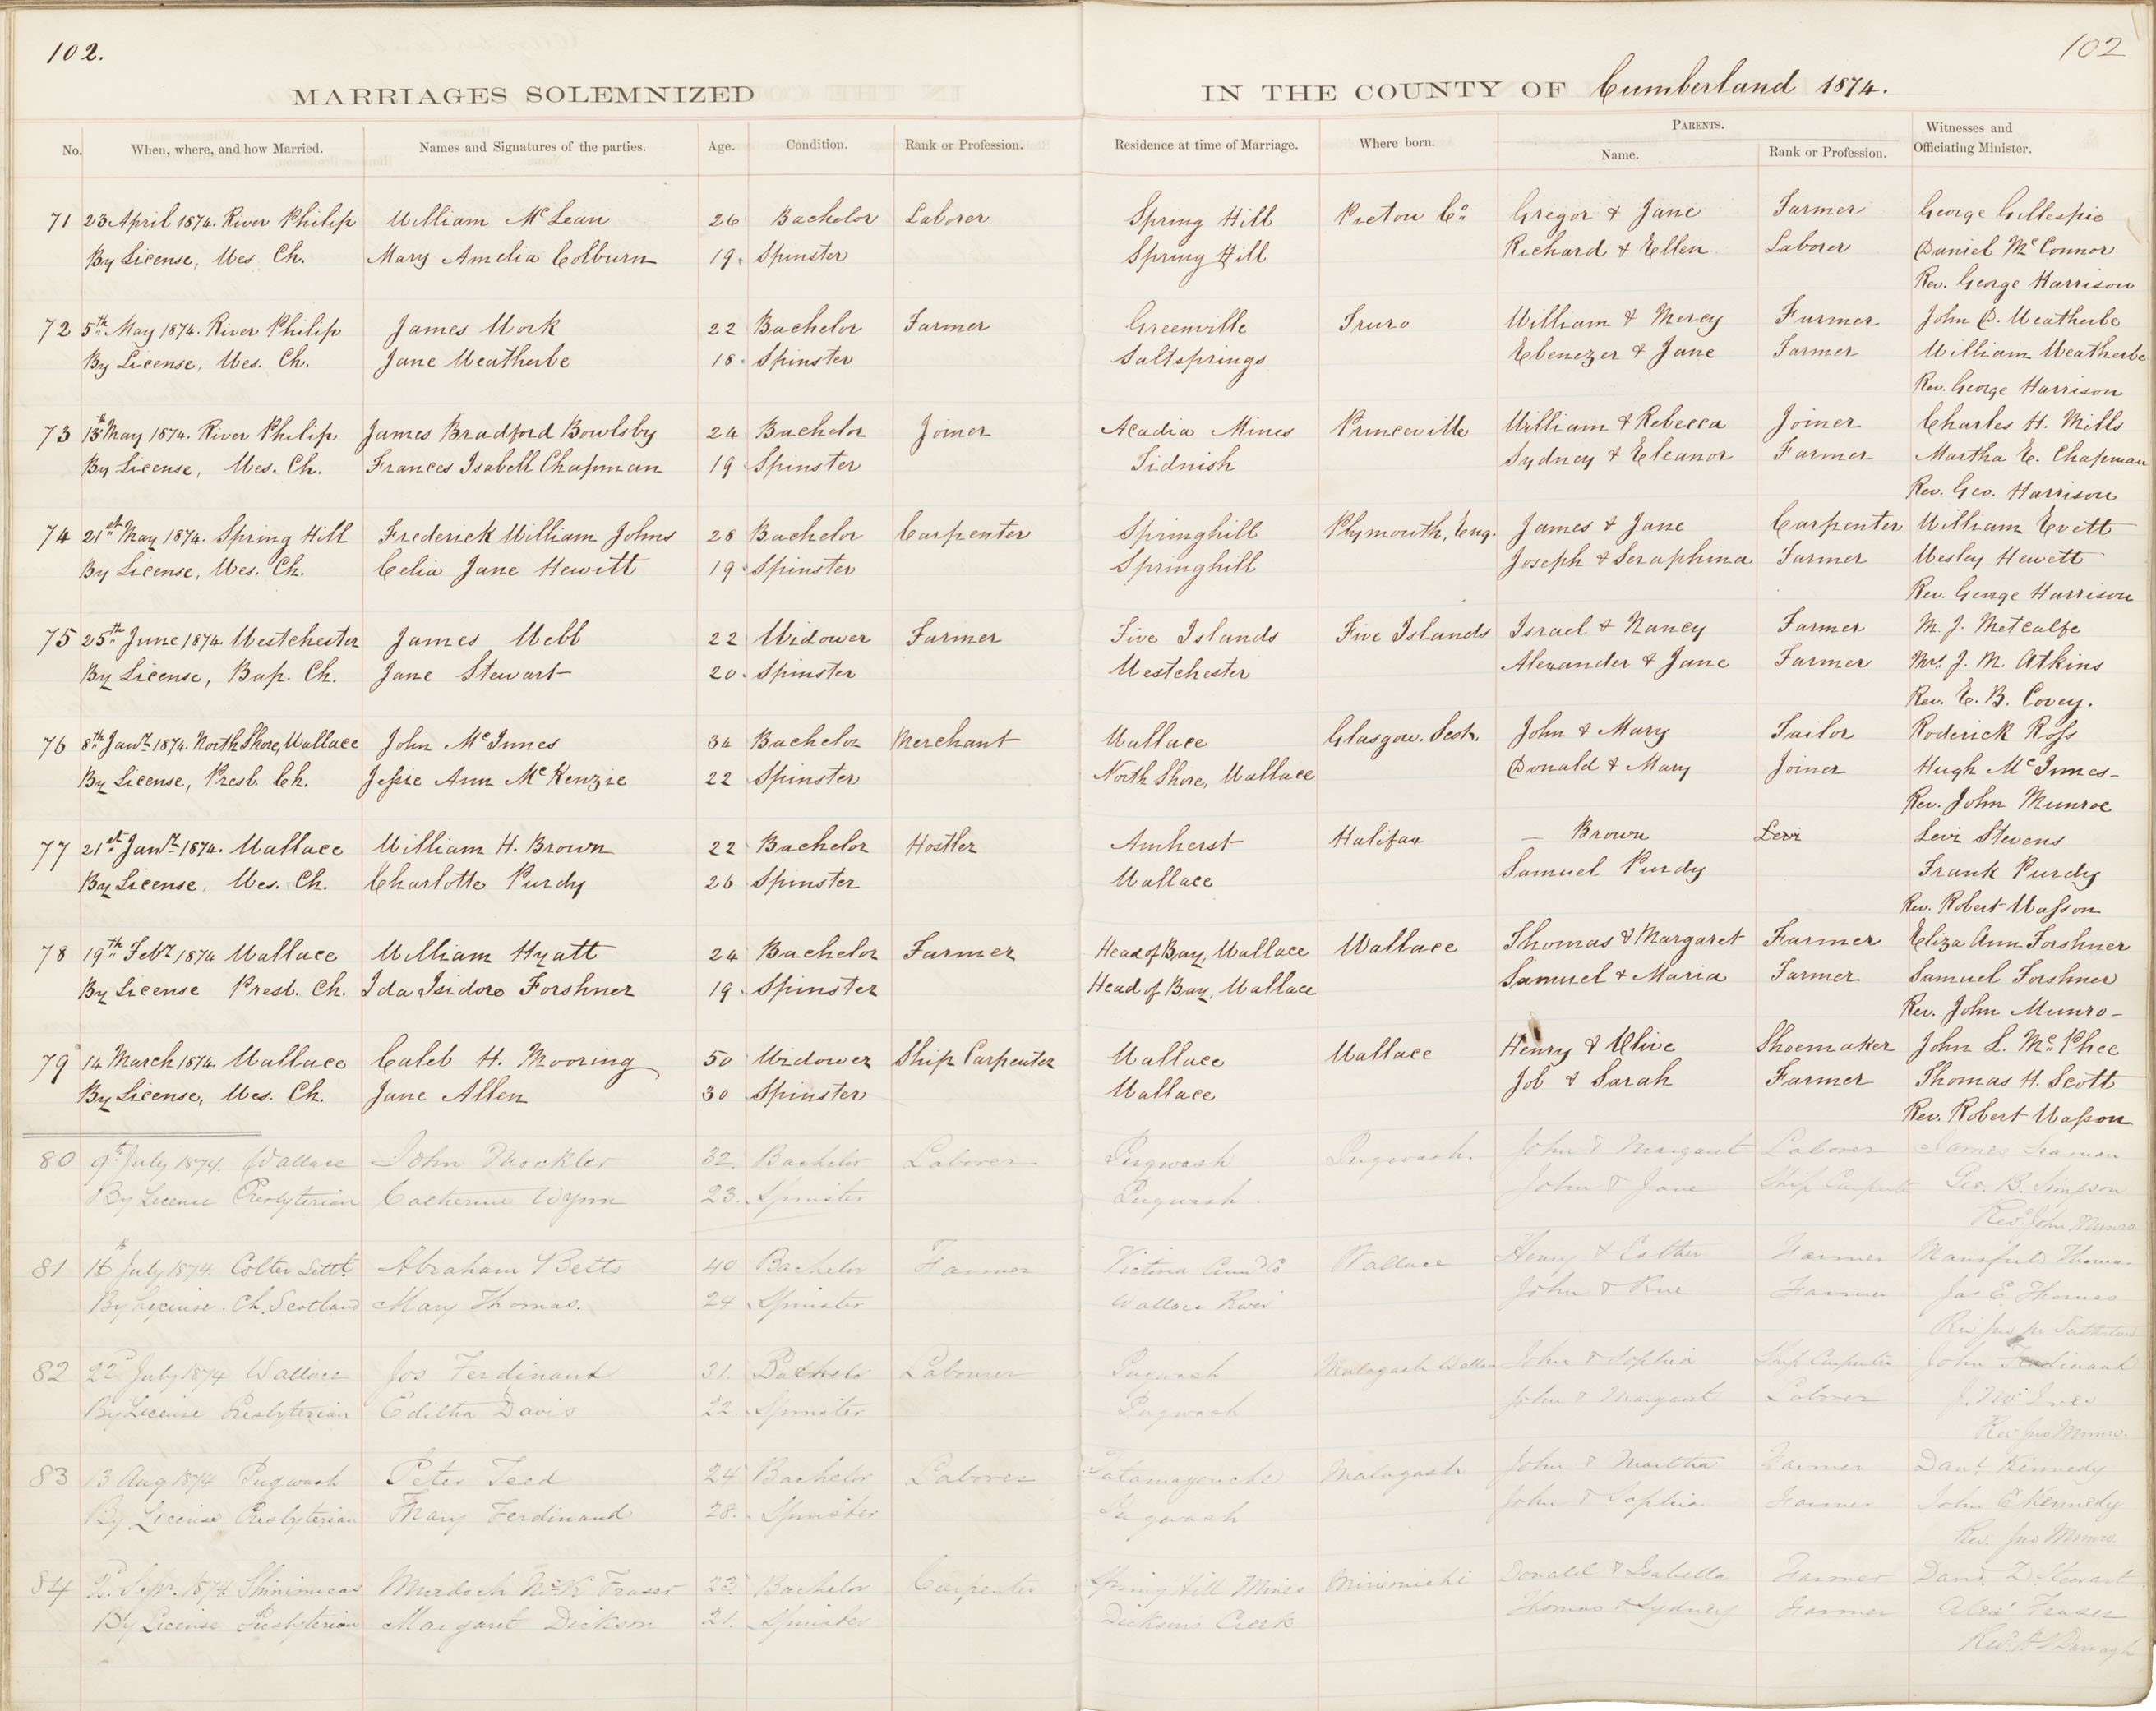 102.
102
MARRIAGES SOLEMNIZED IN THE COUNTY OF Cumberland 1874.
No. When, where, and how Married. Names and Signatures of the parties. Age. Condition. Rank or Profession. Residence at time of Marriage. Where born. PARENTS. Name. Rank or Profession. Witnesses and Officiating Minister.
71 23 April 1874. River Philip William Mc Lean 26 Bachelor Laborer Spring Hill Pictou Co. Gregor & Jane Farmer George Gillespie
By License, Wes Ch. Mary Amelia Colburn 19. Spinster Spring Hill Richard & Ellen Laborer Daniel Mc Connor
Rev. George Harrison
72 5th May 1874. River Philip James Work 22 Bachelor Farmer Greenville Truro William & Mercy Farmer John D. Weatherbe
By License, Wes. Ch. Jane Weatherbe 18. Spinster Saltsprings Ebenezer & Jane Farmer William Weatherbe
Rev. George Harrison
73 13th May 1874. River Philip James Bradford Bowlsby 24 Bachelor Joiner Acadia Mines Princeville William & Rebecca Joiner Charles H. Mills
By License, Wes. Ch. Frances Isabell Chapman 19 Spinster Tidnish Sydney & Eleanor Farmer Martha E. Chapman
Rev. Geo. Harrison
74 21st May 1874. Spring Hill Frederick William Johns 28 Bachelor Carpenter Springhill Plymouth, Eng. James & Jane Carpenter William Evett
By License, Wes. Ch. Celia Jane Hewitt 19. Spinster Springhill Joseph & Seraphina Farmer Wesley Hewett
Rev. George Harrison
75 25th June 1874 Westchester James Webb 22 Widower Farmer Five Islands Five Islands Israel & Nancy Farmer M. J. Metcalfe
By License, Bap. Ch. Jane Stewart 20. Spinster Westchester Alexander & Jane Farmer Mrs. J. M. Atkins
Rev. E. B. Covey.
76 8th Jany. 1874. North Shore, Wallace John Mc Innes 34 Bachelor Merchant Wallace Glasgow. Scot. John & Mary Tailor Roderick Ross
By License, Presb. Ch. Jessie Ann Mc Kenzie 22 Spinster North Shore, Wallace Donald & Mary Joiner Hugh Mc Innes
Rev. John Munroe
77 21st Jany. 1874. Wallace William H. Brown 22 Bachelor Hostler Amherst Halifax — Brown Levi Levi Stevens
By License, Wes. Ch. Charlotte Purdy 26 Spinster Wallace Samuel Purdy Frank Purdy
Rev. Robert Wasson
78 19th Feby. 1874 Wallace William Hyatt 24 Bachelor Farmer Head of Bay, Wallace Wallace Thomas & Margaret Farmer Eliza Ann Forshner
By License Presb. Ch. Ida Isidore Forshner 19. Spinster Head of Bay, Wallace Samuel & Maria Farmer Samuel Forshner
Rev. John Munro
79 14 March 1874. Wallace Caleb H. Mooring 50 Widower Ship Carpenter Wallace Wallace Henry & Olive Shoemaker John L. Mc Phee
By License, Wes. Ch. Jane Allen 30 Spinster Wallace Job & Sarah Farmer Thomas H. Scott
Rev. Robert Wasson
80 9th July 1874. Wallace John Mockler 32. Bachelor Laborer Pugwash Pugwash. John & Margaret Laborer James Seaman
By License Presbyterian Catherine Wynn 23. Spinster Pugwash. John & Jane Ship Carpenter Geo. B. Simpson
Rev. John Munro
81 16th July 1874. Colter Settt. Abraham Betts 40 Bachelor Farmer Victoria Wallace Henry & Esther Farmer Mansfield Thomas
By License. Ch. Scotland Mary Thomas. 24 Spinster Wallace River John & Farmer Jas E. Thomas
Rev Jas
82 22d July 1874 Wallace Jos Ferdinand 31. Bachelor Labourer Pugwash Malagash Wallace John & Sophia Ship Carpenter John Ferdinand
By License Presbyterian Editha Davis 22. Spinster Pugwash John & Margaret Laborer
Rev Jno Munro.
83 13 Aug 1874 Pugwash Peter Teed 24 Bachelor Laborer Tatamagouche Malagash John & Martha Farmer Danl. Kennedy
By License Presbyterian Mary Ferdinand 28. Spinster Pugwash John & Sophia Farmer John C Kennedy
Rev. Jno Munro.
84 Sepr. 1874 Shinimicas Murdoch McK Fraser 23. Bachelor Carpenter Spring Hill Mines Mirimichi Donald & Isabella Farmer David D. Stewart
By License Presbyterian Margaret Dickson 21. Spinster Dicksons Creek Thomas & Sydney Farmer Alexr Fraser
Rev.